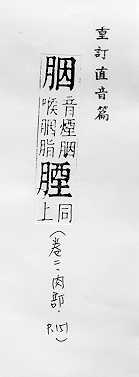 重訂直音篇
胭
音煙胭
喉胭脂
同
上
(卷二·肉部·P.151)